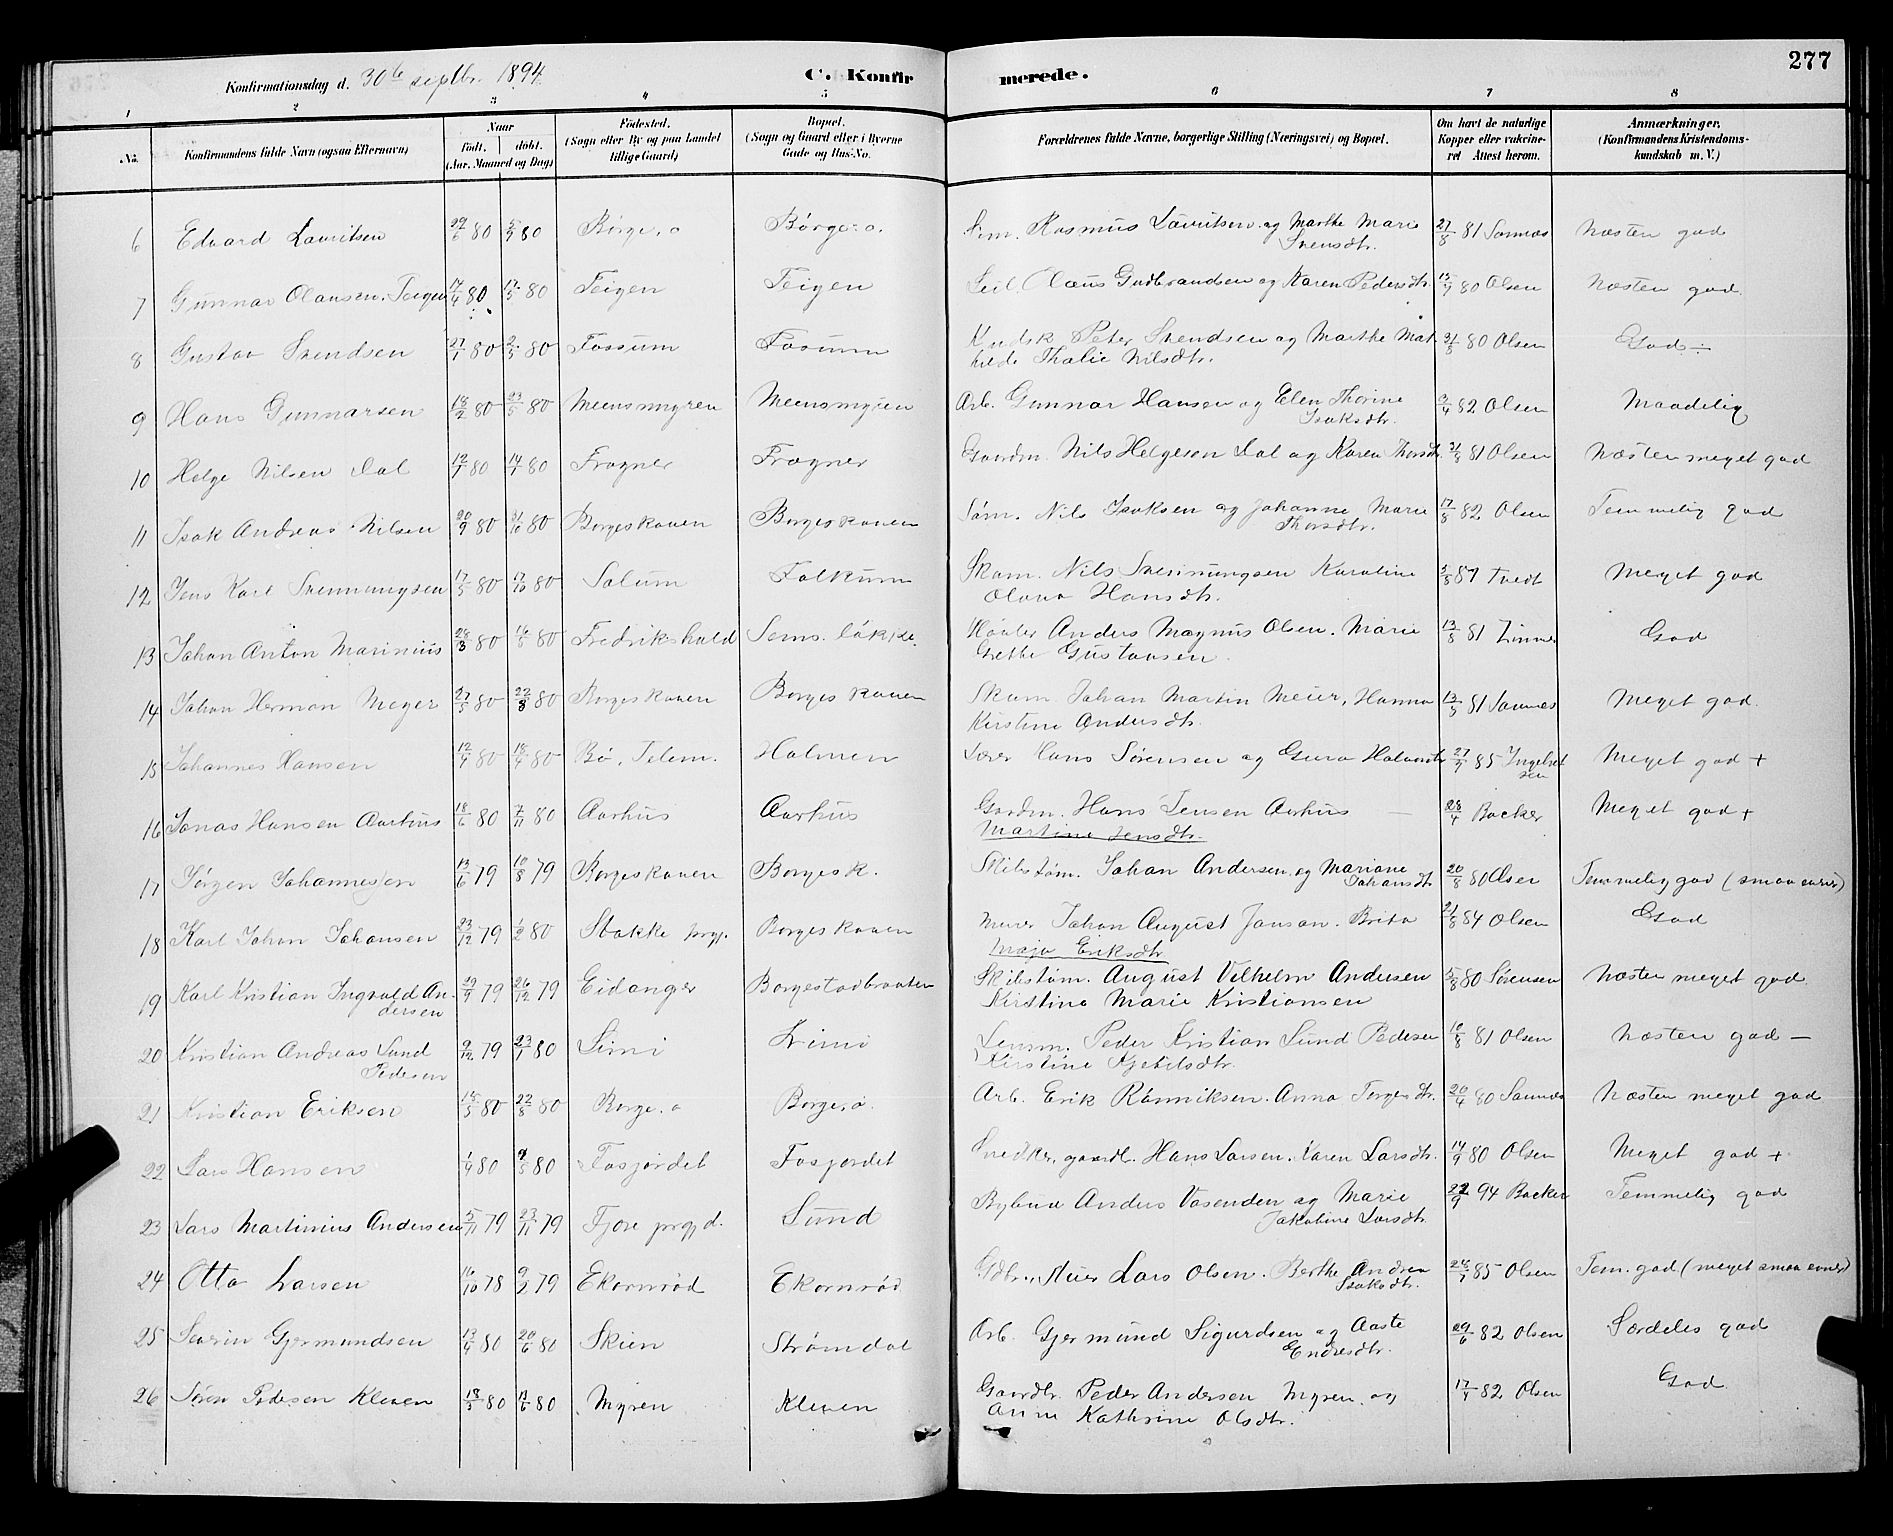 277
Konfirmationsdag d. 30te septbr. 1894
C. Konfirmerede.
1 2 3 4 5 6 7 8
No.
Konfirmandens fulde Navn (ogsaa Efternavn)
Naar
født. døbt.
(Aar, Maaned og Dag)
Fødested.
(Sogn eller By og paa Landet
tillige Gaard)
Bopæl.
(Sogn og Gaard eller i Byerne
Gade og Hus-No.
Forældrenes fulde Navne, borgerlige Stilling (Næringsvei) og Bopæl.
Om havt de naturlige
Kopper eller vakcine-
ret Attest herom.
Anmærkninger.
(Konfirmandens Kristendoms-
kundskab m. V.)
6 Edvard Lauritsen 29/6 80 5/9 80 Børge.ø Børge.ø. Rasmus Lauritsen og Marthe Marie Svensdtr. 27/8 81 Sannæs Næsten god
7 Gunnar Olausen Teigen 17/4 80 17/5 80 Teigen Teigen Olaus Gudbrandsen og Karen Pedersdtr. 13/9 80 Olsen Næsten god
8 Gustav Svendsen 27/1 80 2/5 80 Fossum Fossum Peter Svendsen og Marthe Mathilde Thalie Nilsdtr. 21/5 80 Olsen God ÷
9 Hans Gunnarsen 18/2 80 23/5 80 Meensmyren Meensmyren Arb. Gunnar Hansen og Elen Thorine Isaksdtr. 3/4 82 Olsen Maadelig
10 Helge Nilsen Dal 12/1 80 14/1 80 Frogner Frogner Gaardm. Nils Helgesen Dal og Karen Thorsdtr. 31/8 81 Olsen Næsten meget god
11 Isak Andreas Nilsen 20/9 80 31/10 80 Borgeskanen Borgeskanen Søm. Nils Isaksen og Johanne Marie Thorsdtr. 17/8 82 Olsen Temmelig god
12 Jens Karl Svennungsen 17/5 80 17/10 80 Solum Falkum Skom. Nils Svennungsen Karoline Olava Hansdtr. 3/8 87 Tvedt Meget god
13 Johan Anton Marinius 28/3 80 16/5 80 Fredrikshald Sems.løkke. Anders Magnus Olsen. Marie Grethe Gustavsen. 13/8 81 Zimmer God
14 Johan Herman Meyer 27/5 80 22/8 80 Borgeskanen Borgeskanen Skom. Johan Martin Meier, Hanna Kirstine Andersdtr. 13/5 81 Sannæs Meget god.
15 Johannes Hansen 12/4 80 18/4 80 Bø, Telem. Holmen Hans Sørensen og Guro Halvorsdtr 27/7 85 Ingebretsen Meget god +
16 Jonas Hansen Aarhus 18/6 80 7/11 80 Aarhus Aarhus Gaardm. Hans Jensen Aarhus — Martine Jensdtr. 28/4 Backer Meget god +
17 Jørgen Johannessen 13/6 79 10/8 79 Borgeskanen Borgesk. Skibstøm. Johan Andersen og Mariane Johansdtr 20/8 80 Olsen Temmelig god (smaa evner)
18 Karl Johan Johansen 23/12 79 1/2 80 Stokke prgj. Borgeskanen Murer Johan August Janson. Brita Maja Eriksdtr 21/8 84 Olsen God
19 Karl Kristian Ingvald Andersen 29/9 79 26/12 79 Eidanger Borgestadbraaten Skibstøm. August Vilhelm Andersen Kirstine Marie Kristiansen 5/8 80 Sørensen Næsten meget god.
20 Kristian Andreas Sund Pedersen 9/12 79 23/1 80 Limi Limi Peder Kristian Sund Pedersen Kirstine Kjetilsdtr. 10/8 81 Olsen Næsten god —
21 Kristian Eriksen 15/5 80 22/8 80 Borge.ø Borge.ø. Arb. Erik Rønniksen. Anna Torgersdtr. 20/4 80 Sannæs Næsten meget god
22 Lars Hansen 1/4 80 9/5 80 Fosjordet Fosjordet Snedker, gaardl. Hans Larsen. Karen Larsdtr. 14/9 80 Olsen Meget god +
23 Lars Martinius Andersen 5/11 79 23/11 79 Fjære prgjd. Sund Anders Vasenden og Marie Jakobine Larsdtr. 22/9 94 Backer Temmelig god
24 Otto Larsen 16/10 78 9/2 79 Ekornrød Ekornrød Lars Olsen. Berthe Andrea Isaksdtr. 28/7 85 Olsen Tem. god (meget smaa evner)
25 Severin Gjermundsen 13/4 80 20/6 80 Skien Strømdal Arb. Gjermund Sigurdsen og Aaste Endresdtr. 29/6 82 Olsen Særdeles god
26 Søren Pedersen Kleven 18/5 80 17/6 80 Myren Kleven Gaardbr. Peder Andersen Myren og Anne Kathrine Olsdtr. 17/4 82 Olsen God.